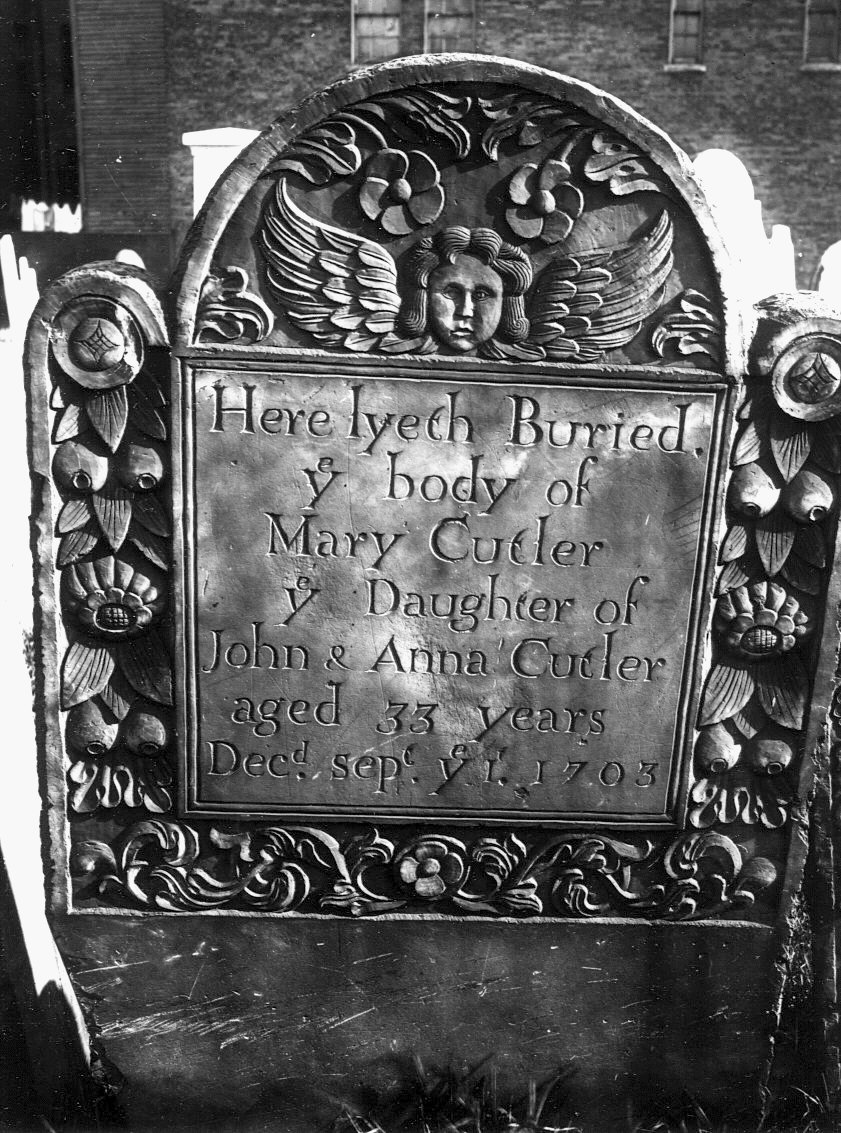 Here lyeth Buried.
yᵉ body of
Mary Cutler
yᵉ Daughter of
John & Anna Cutler
aged 33 years
Decᵈ. sepᵗ. yᵉ 1. 1703